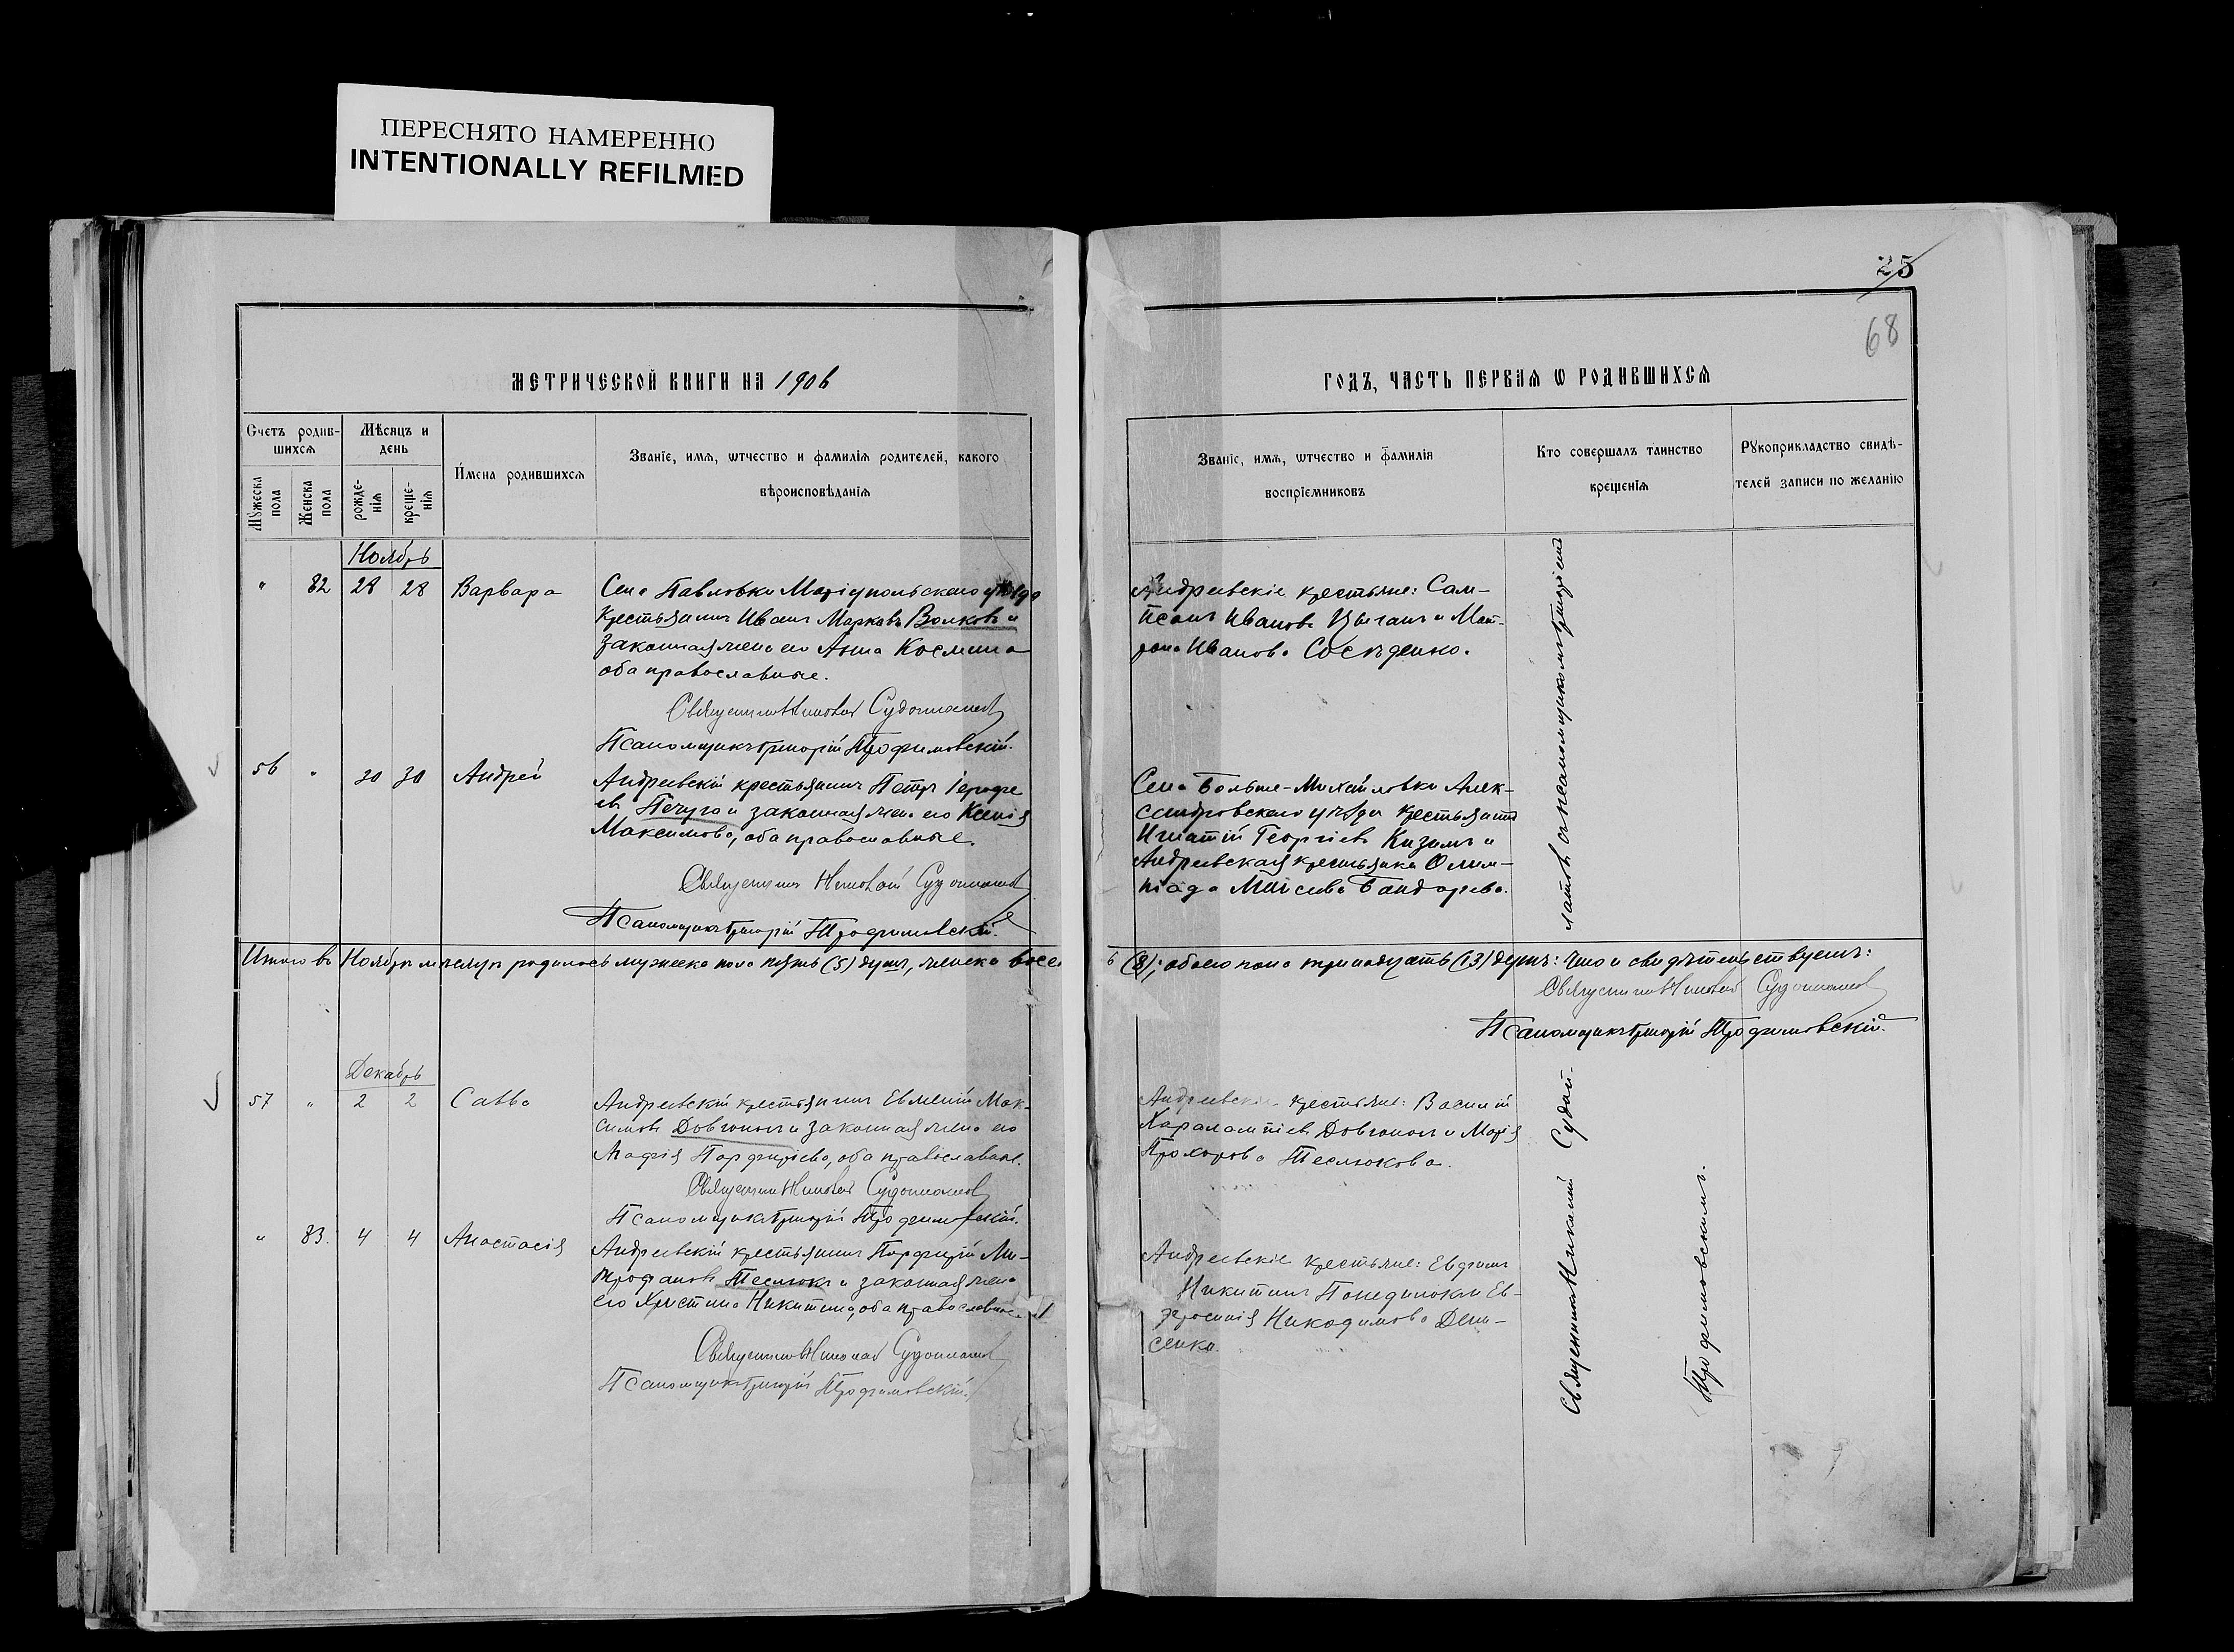 ПЕРЕСНЯТО НАМЕРЕННО
INTENTIONALLY REFILMED
25
68
МЕТРИЧЕСКОЙ КНИГИ НА 1906
ГОДЪ, ЧАСТЬ ПЕРВАЯ Ѡ РОДИВШИХСЯ
Счетъ родив-
шихся
Мѣсяцъ и
день
Мужеска
пола
Женска
пола
рожде-
нія
креще-
нія
Имена родившихся
Званіе, имя, ѡтчество и фамилія родителей, какого
вѣроисповѣданія
Званіе, имя, ѡтчество и фамилія
воспріемниковъ
Кто совершалъ таинство
крещенія
Рукоприкладство свидѣ-
телей записи по желанію
Ноябрь
" 82 28 28 Варвара
Села Павловки Маріупольскаго уѣзда
крестьянинъ Иванъ Марковъ Волковъ и
законная жена его Анна Космина
оба православные.
Священникъ Николай
Псаломщикъ Григорій Трофимовскій.
Андреевскіе крестьяне: Сам-
псонъ Ивановъ Цыганъ и Мат-
рона Иванова Сосѣденко.
56 " 30 30 Андрей
Андреевскій крестьянинъ Петръ Іерофе
евъ Печуго и законная жена его Ксенія
Максимова, оба православные.
Священникъ Николай
Псаломщикъ Григорій Трофимовскій.
Села Больше-Михайловки Алек-
сандровскаго уѣзда крестьянинъ
Игнатій Георгіевъ Кизимъ и
Андреевская крестьянка Олим-
піада Моисеева Бандарева.
Итого въ Ноябрѣ мѣсяцѣ родилось мужеска пола пять (5) душъ, женска восемь (8); обоего пола тринадцать (13) душъ: что и свидѣтельствуемъ:
Священникъ Николай
Псаломщикъ Григорій Трофимовскій.
Декабрь
57 " 2 2 Савва
Андреевскій крестьянинъ Евменій Мак-
симовъ Довгополъ и законная жена его
Марія Порфиріева, оба православные.
Священникъ Николай
Псаломщикъ Григорій Трофимовскій.
Андреевскіе крестьяне: Василій
Харалампіевъ Довгополъ и Марія
Прохорова Теслюкова.
" 83. 4 4 Анастасія
Андреевскій крестьянинъ Порфирій Ми-
трофановъ Теслюкъ и законная жена
его Христина Никитина, оба православные.
Священникъ Николай
Псаломщикъ Григорій Трофимовскій.
Андреевскіе крестьяне: Евфимъ
Никитинъ Поединокъ и Ев-
фросинія Никодимова Дени-
сенко.
Священникъ Николай
съ псаломщикомъ Григоріемъ
Трофимовскимъ.